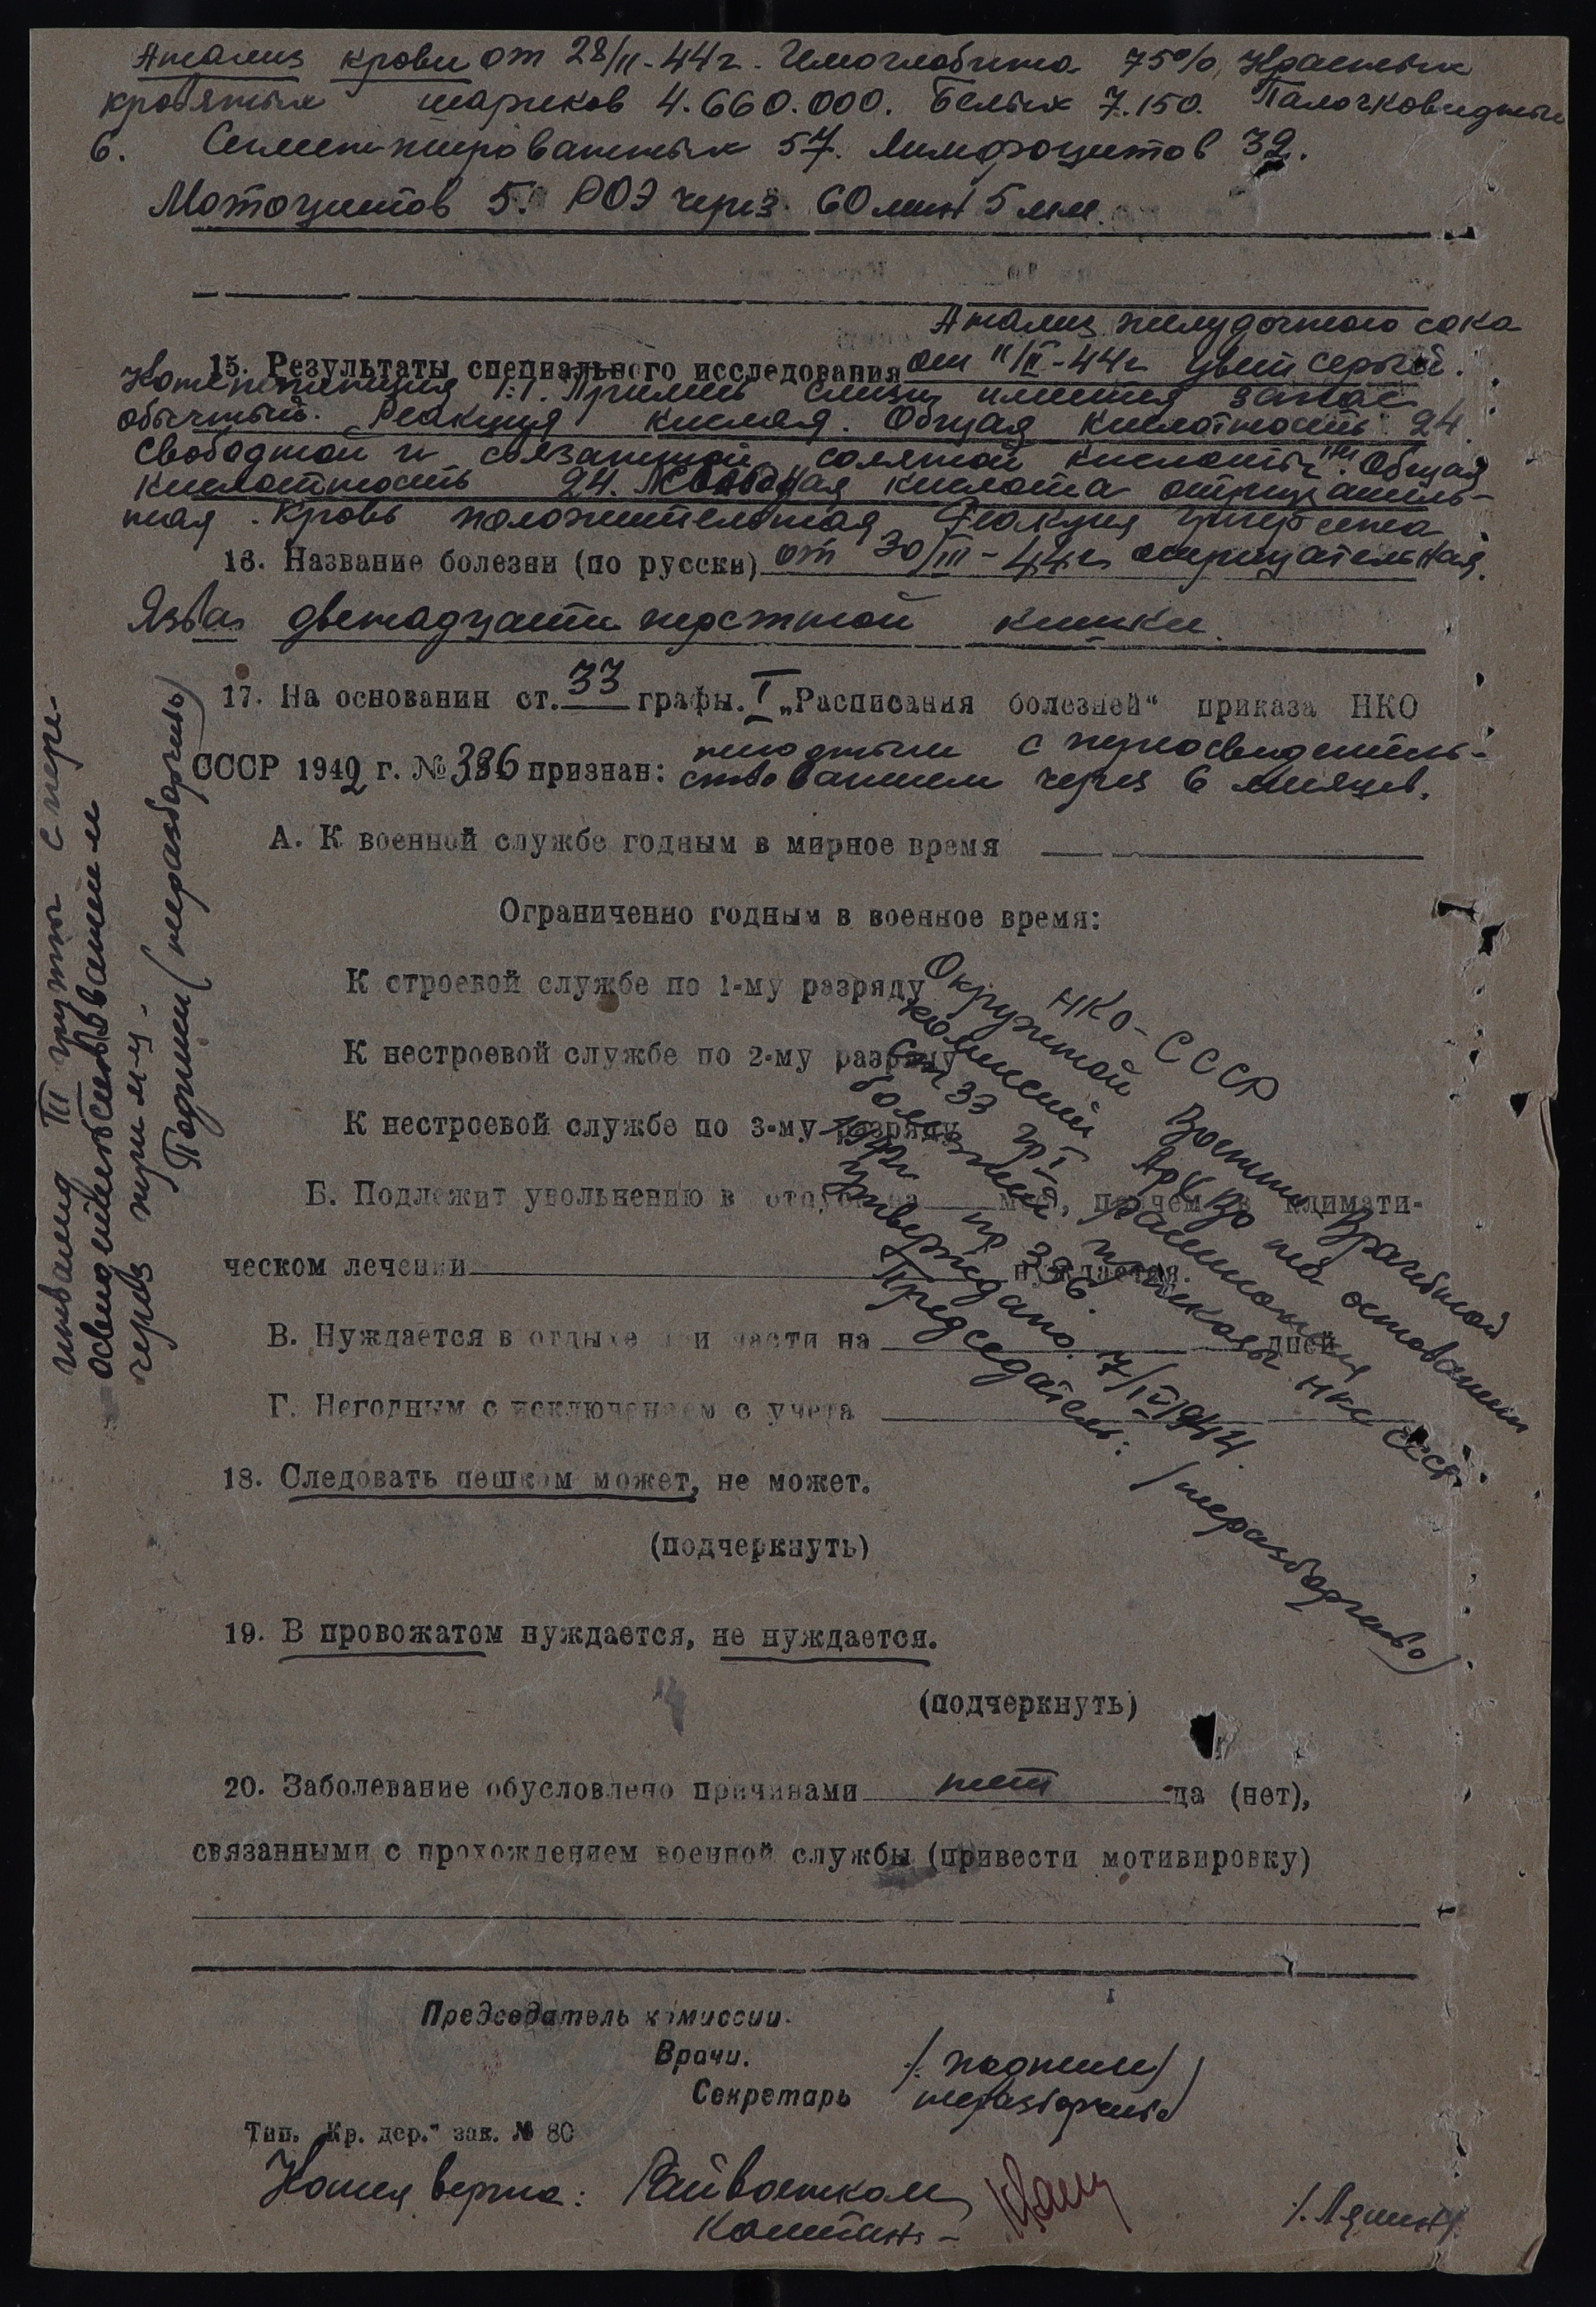 Анализ крови от 28/II-44г. Гемоглобина 75%, Красных
кровяных шариков 4.660.000. Белых 7.150. Палочковидных
6. Сегментированных 57. Лимфоцитов 32.
Моноцитов 5. РОЭ через 60 мин 5 мм.
Анализ желудочного сока
15. Результаты специального исследования от 11/II-44г цвет серый.
Консистенция 1:1. Примесь слизи имеется запах
обычный. Реакция кислая. Общая кислотность 24.
Свободной и связанной соляной кислоты нет. Общая
кислотность 24. кислота отрицатель-
ная. Кровь положительная. Реакция
16. Название болезни (по русски) от 30/III-44г отрицательная.
Язва двенадцати перстной кишки.
17. На основании ст. 33 графы I „Расписания болезней“ приказа НКО
СССР 1942 г. № 336 признан: негодным с переосвидетель-
ствованием через 6 месяцев.
А. К военной службе годным в мирное время
Ограниченно годным в военное время:
К строевой службе по 1-му разряду
К нестроевой службе по 2-му разряду
К нестроевой службе по 3-му разряду
Б. Подлежит увольнению в отпуск на мес, причем в климати-
ческом лечении нуждается.
В. Нуждается в отдыхе при части на дней
Г. Негодным с исключением с учета
18. Следовать пешком может, не может.
(подчеркнуть)
19. В провожатом нуждается, не нуждается.
(подчеркнуть)
20. Заболевание обусловлено причинами нет да (нет),
связанными с прохождением военной службы (привести мотивировку)
Председатель комиссии.
Врачи. /подписи/
Секретарь неразборчиво/
Тип. „Кр. дер.“ зак. № 80
Копия верна: Райвоенком
Капитан -
НКО-СССР
Окружной Военно Врачебной
комиссией АрхВО на основании
ст 33 гр I Расписания
болезней приказа НКО СССР
1942г пр 336.
Утверждано. 7/IV 1944.
Председатель: /неразборчиво/
инвалид III группы с пере-
освидетельствованием
через
Подписи (неразборчивы)